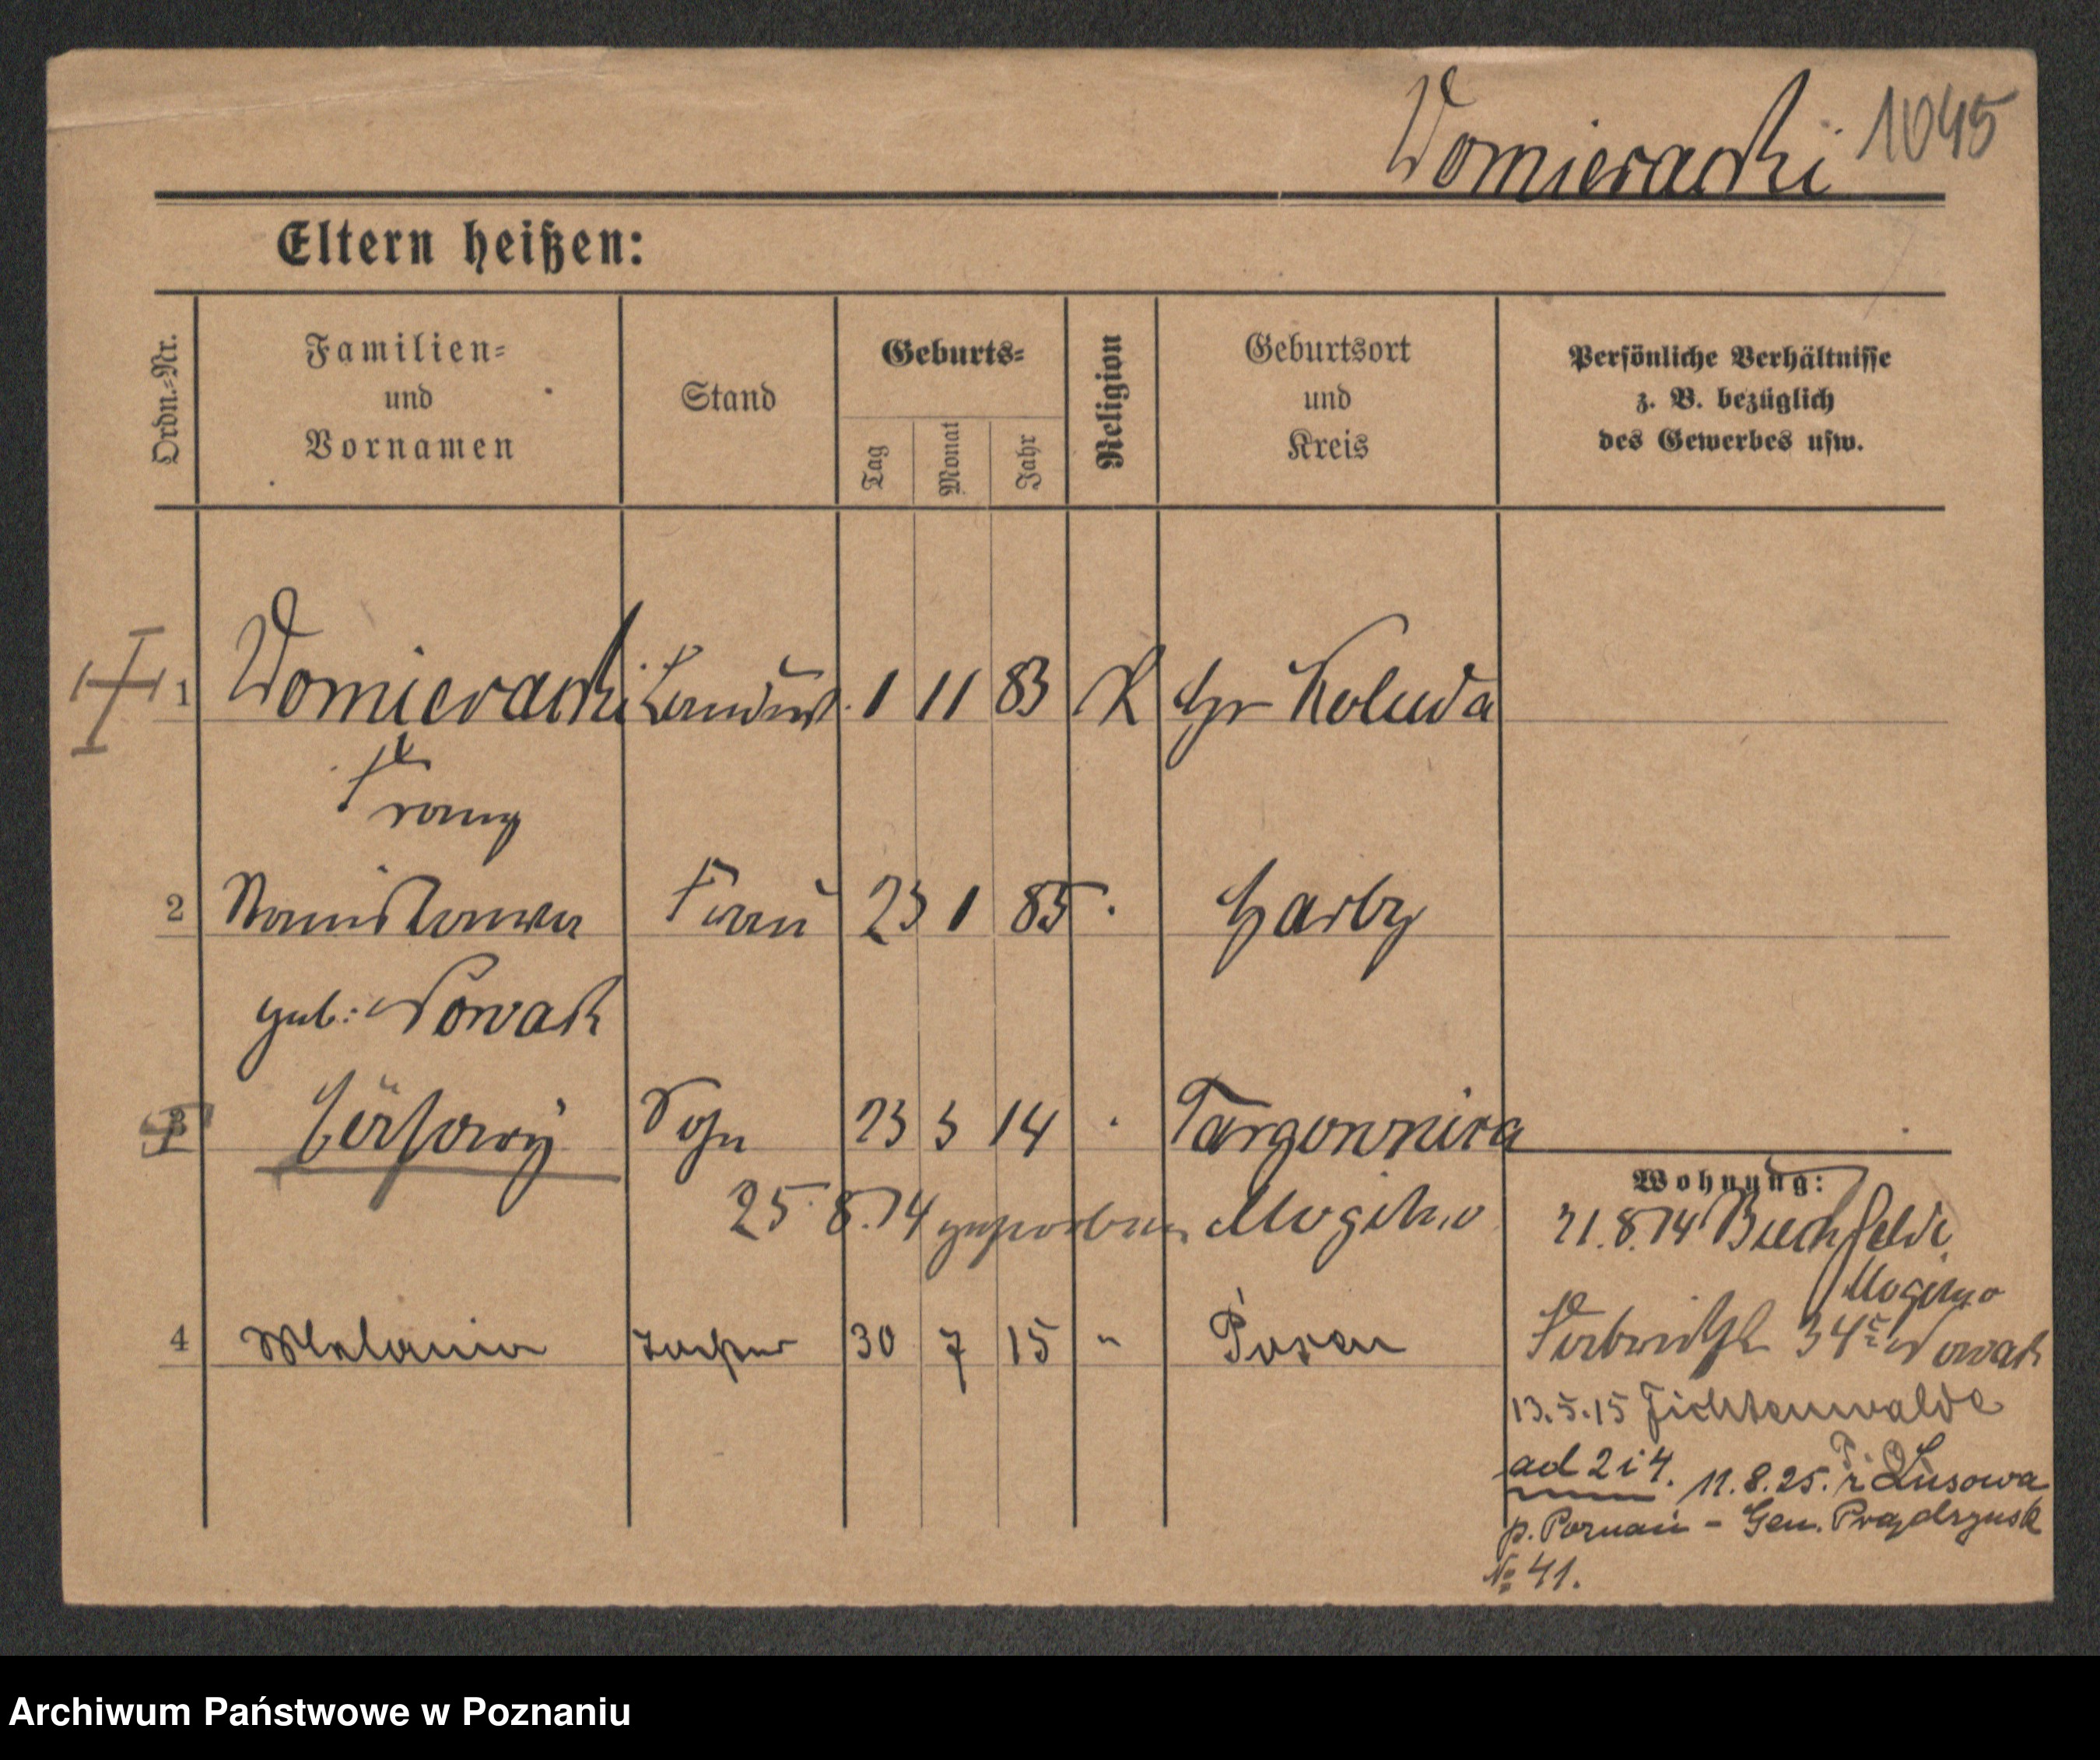 Domieracki 1045
Eltern heißen:
Ordn.=Nr.
Familien=
und
Vornamen
Stand
Geburts=
Tag
Monat
Jahr
Religion
Geburtsort
und
Kreis
Persönliche Verhältnisse
z. B. bezüglich
des Gewerbes usw.
1 Domieracki Landw. 1 11 83 K Gr Koluda
Franz
2 Stanislawa Frau 23 1 85 Garby
geb: Nowak
3 Sohn 23 3 14 Targownica
25.8.14 gestorben Mogilno
Wohnung:
21.8.14 Buchfelde
Mogilno
4 Melania Tochter 30 7 15 " Posen
34 Nowak
13.5.15 Fichtenwalde
ad 2 i 4. 11.8.25. Lusowa
p. Poznań - Gen. Prądzyńsk
№ 41.
Archiwum Państwowe w Poznaniu